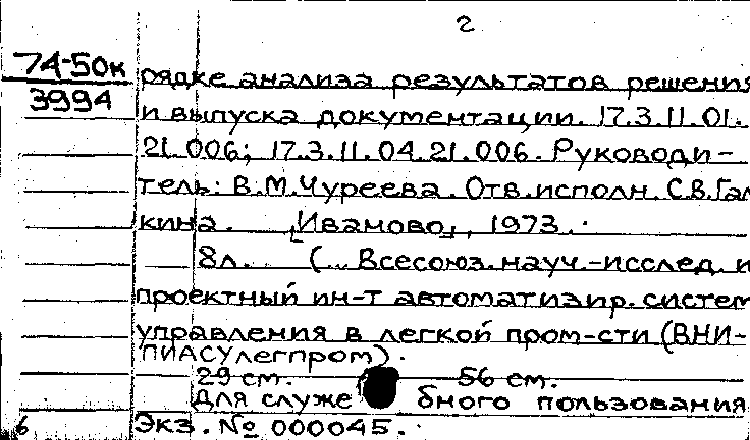 2
74-50к
3994
рядке анализа результатов решения
и выпуска документации. 17.3.11.01.
21.006; 17.3.11.04.21.006. Руководи-
тель: В.М.Чуреева. Отв.исполн. С.В.Гал
кина. [Иваново], 1973.
8л. (... Всесоюз. науч.-исслед. и
проектный ин-т автоматизир. систем
управления в легкой пром-сти (ВНИ-
ПИАСУлегпром).
29 см. 56 см.
Для служе бного пользования
Экз. № 000045.
6